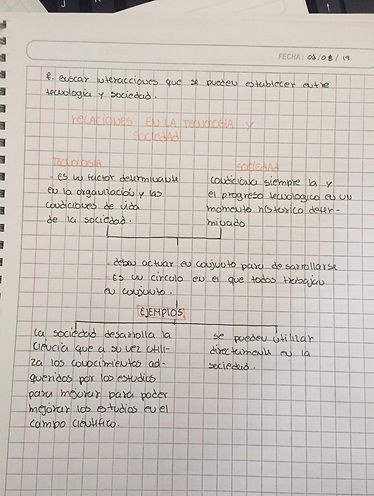 FECHA: 06/08/19
f. Buscar interacciones que se pueden establecer entre
tecnología y sociedad.
RELACIONES EN LA TECNOLOGIA Y
SOCIEDAD
TECNOLOGIA
- Es un factor determinante
en la organización y las
condiciones de vida
de la sociedad.
SOCIEDAD
condiciona siempre la y
el progreso tecnologico en un
momento historico deter-
minado
- deben actuar en conjunto para desarrollarse
- Es un circulo en el que todos trabajan
en conjunto.
EJEMPLOS
la sociedad desarrolla la
ciencia que a su vez utili-
za los conocimientos ad-
queridos por los estudios
para mejorar para poder
mejorar los estudios en el
campo cientifico.
se pueden utilizar
directamente en la
sociedad.